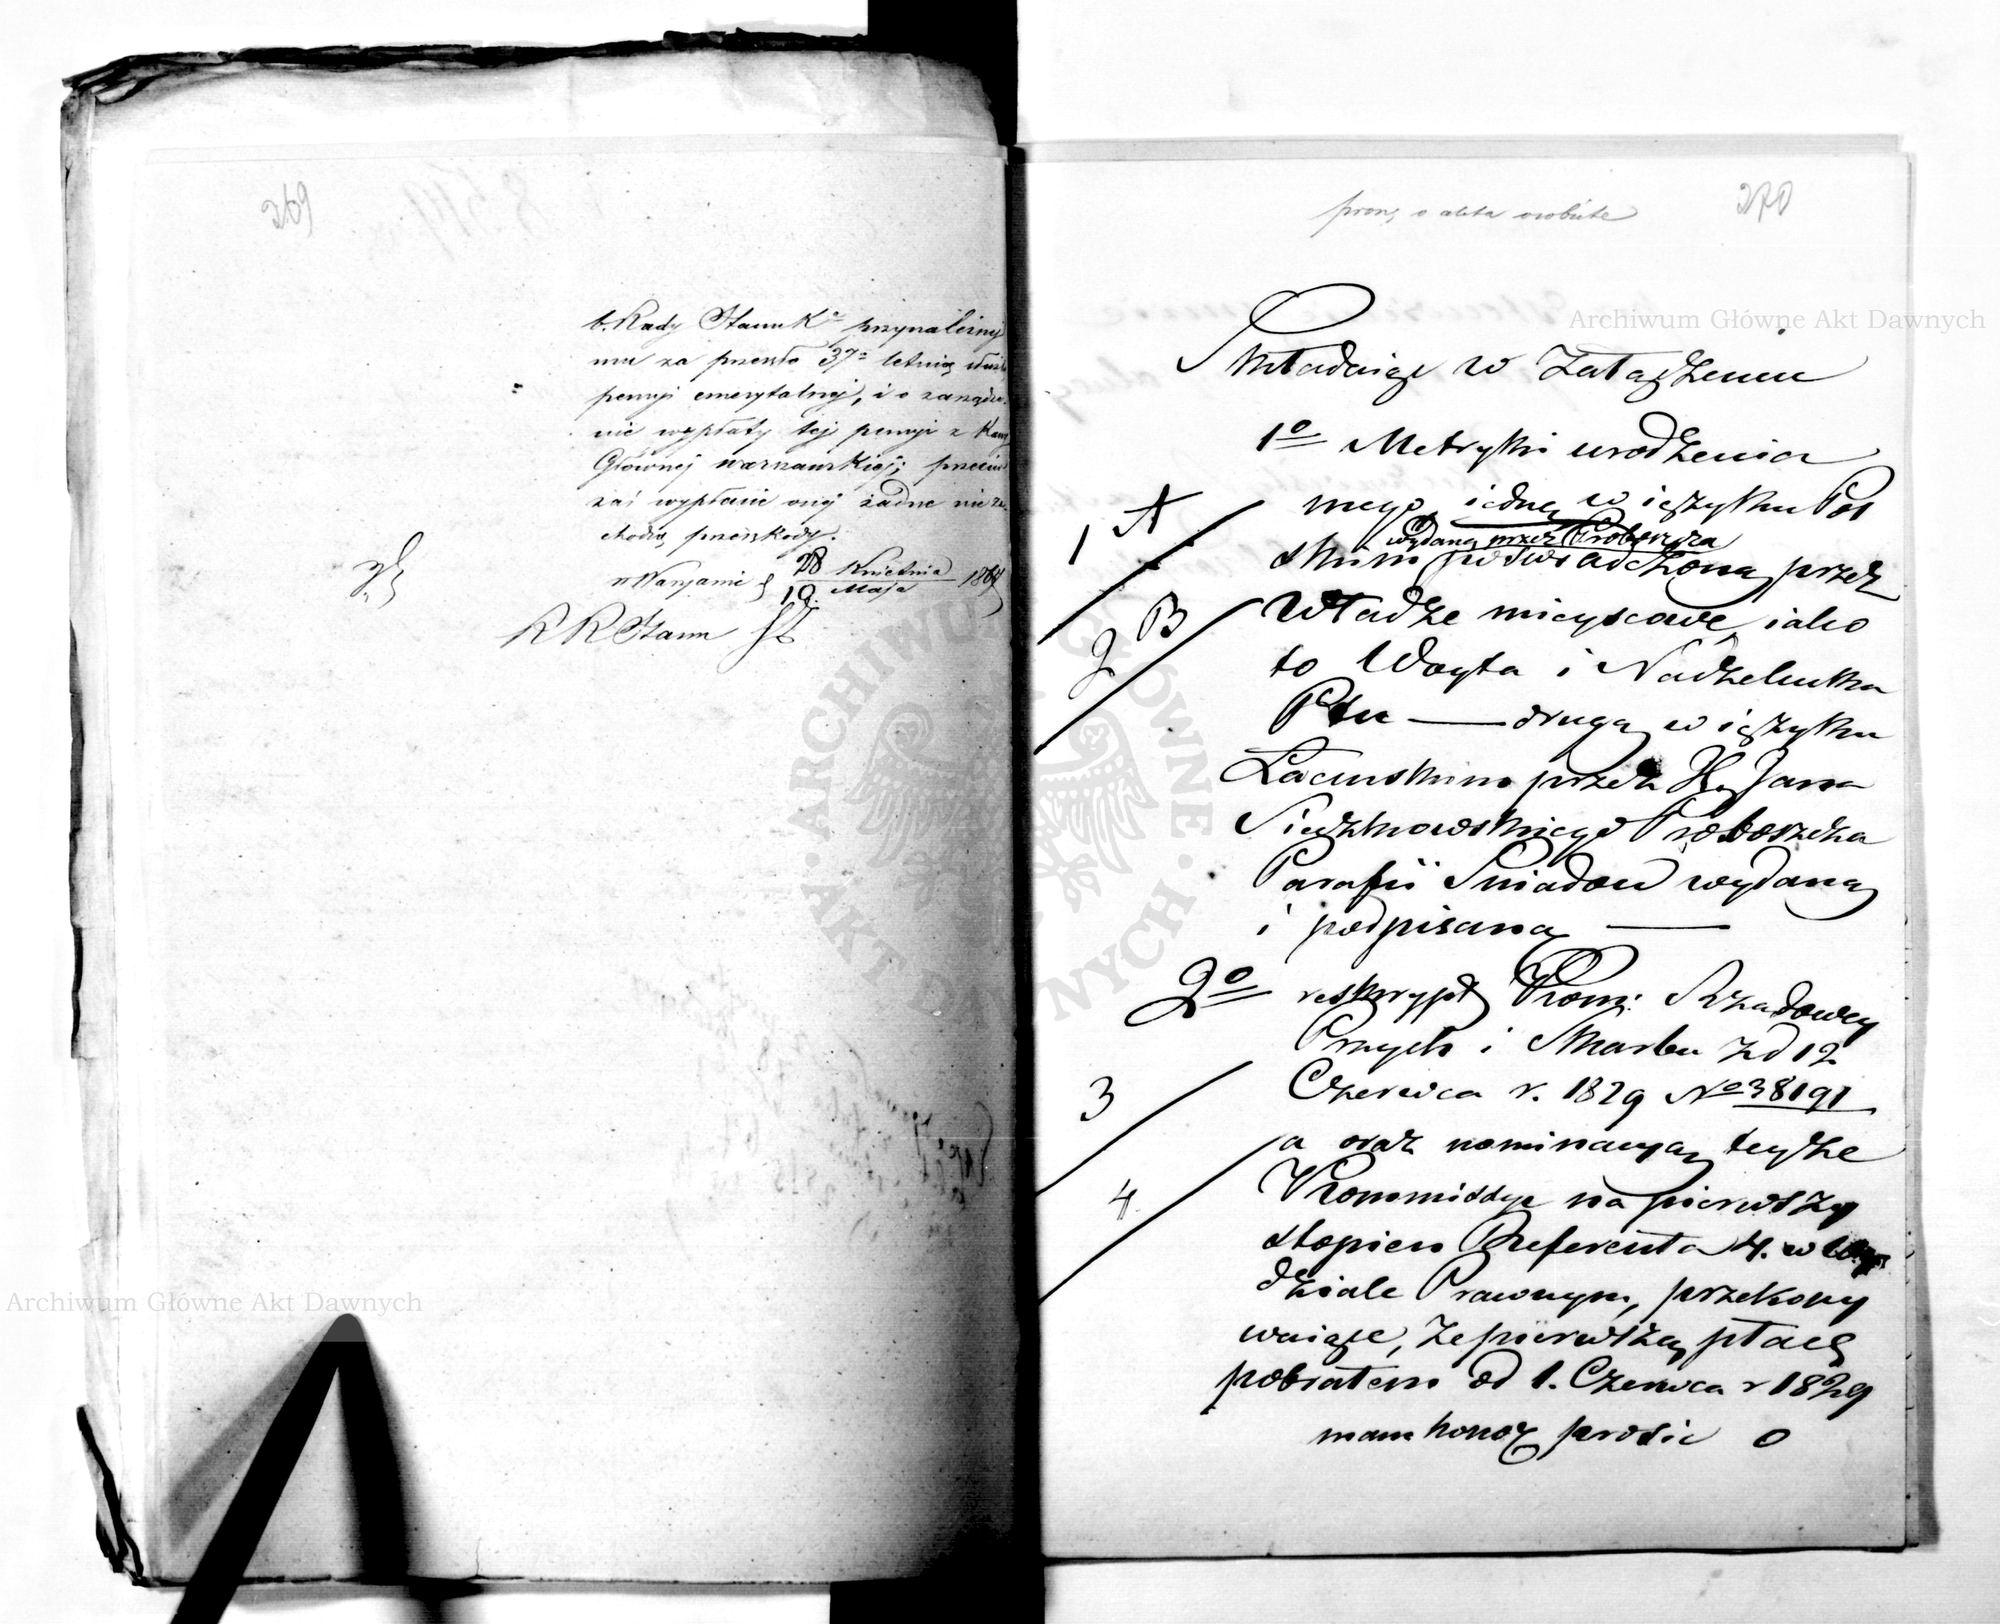 269
b. Rady Stanu Kr. przynależnej
mu za przeszło 37o letnią służbę
pensyi emerytalnej, i o zarządze-
nie wypłaty tej pensyi z Kassy
Głównej warszawskiej; przeciw
zaś wypłacie onej żadne nie za-
chodzą przeszkody.
w Warszawie d 28 Kwietnia 1867
10 Maja
R R Stanu
270
proszę o akta osobiste
Składaiąc w Załączeniu
1o Metryki urodzenia
mego, iedną w ięzyku Pol
wydaną przez Proboszcza
skim poświadczoną przez
Władze mieyscowe iako
to Woyta i Nadzelnika
Ptu — drugą w ięzyku
Łacińskim przez X. Jana
Sieczkowskiego Proboszcza
Parafii Sniadow wydaną
i podpisaną —
2o reskrypt Kom: Rządowey
Przych i Skarbu z d 12
Czerwca r. 1829 No 38191
a oraz nominacyą teyże
Kommissyi na pierwszy
stopien Referenta 4. w Wy
dziale Prawnym, przekony
waiące, że pierwszą płacę
pobrałem od 1. Czerwca r 1829
mam honor prosić o
1 A
2 B
3
4.
Archiwum Główne Akt Dawnych
Archiwum Główne Akt Dawnych
ARCHIWUM GŁÓWNE · AKT DAWNYCH ·